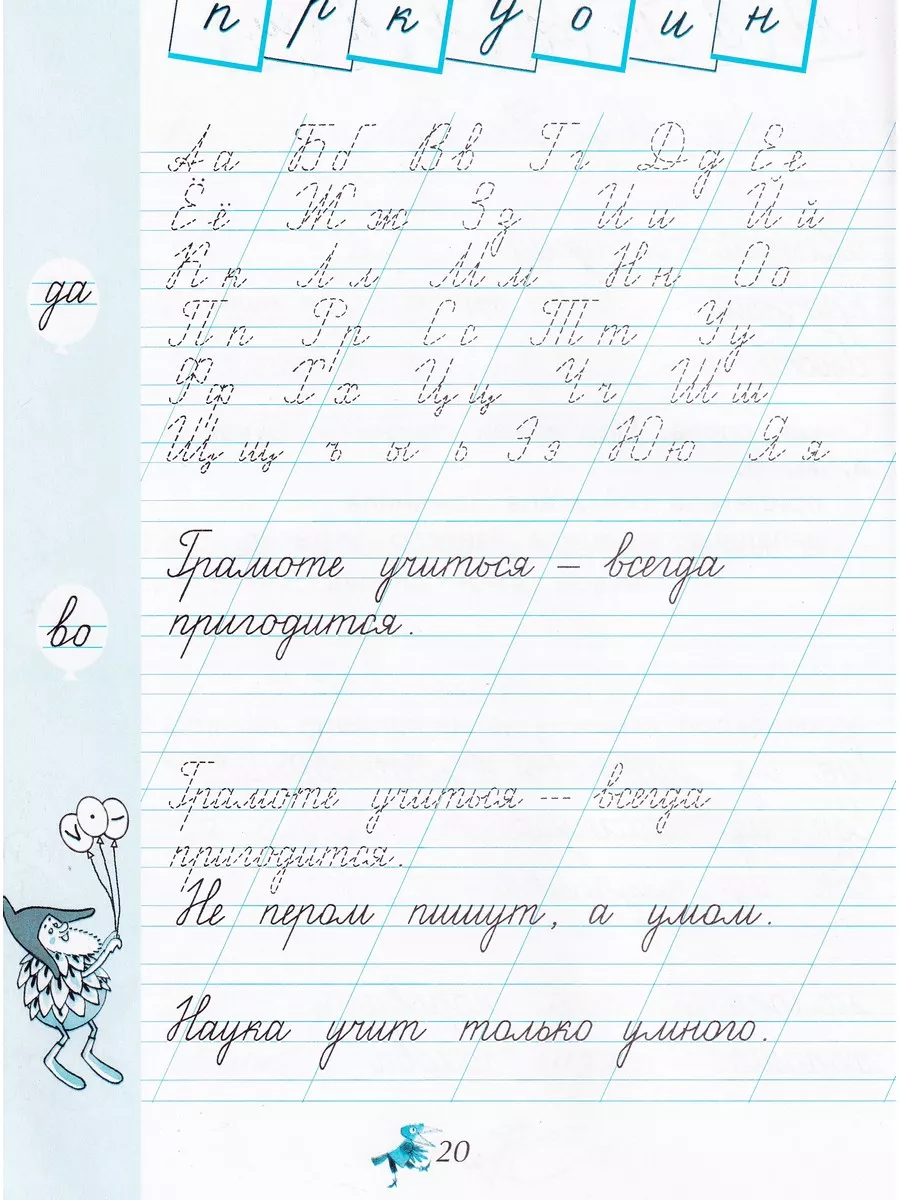 п р к у о и н
Аа Бб Вв Гг Дд Ее
Ёё Жж Зз Ии Йй
Кк Лл Мм Нн Оо
Пп Рр Сс Тт Уу
Фф Хх Цц Чч Шш
Щщ ъ ы ь Ээ Юю Яя
да
Грамоте учиться – всегда
пригодится.
во
Грамоте учиться --- всегда
пригодится.
Не пером пишут, а умом.
Наука учит только умного.
20